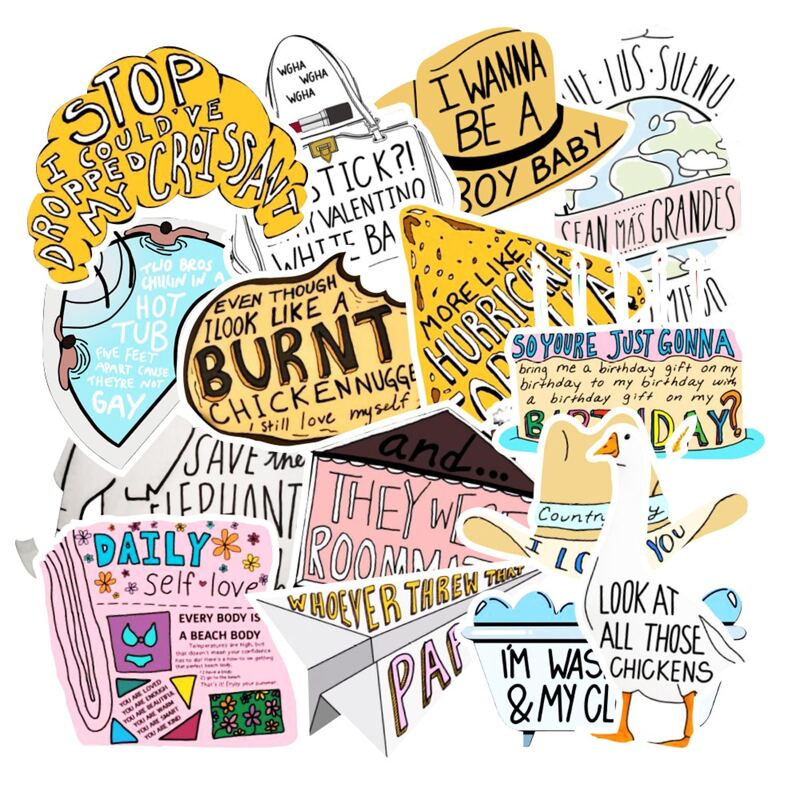 STOP
I COULD'VE
DROPPED
MY CROISSANT
WGHA
WGHA
WGHA
STICK?!
MY VALENTINO
WHITE BA
I WANNA
BE A
BOY BABY
TUS SUEÑO
SEAN MÁS GRANDES
TWO BROS
CHILLIN IN A
HOT
TUB
FIVE FEET
APART CAUSE
THEYRE NOT
GAY
EVEN THOUGH
I LOOK LIKE A
BURNT
CHICKEN NUGGE
I still love myself
MORE LIKE
HURRICANE
SO YOURE JUST GONNA
bring me a birthday gift on my
birthday to my birthday with
a birthday gift on my
BIRTHDAY?
SAVE the
ELEPHANT
and...
THEY WE
ROOMMA
Country
I LO YOU
DAILY
self love
EVERY BODY IS
A BEACH BODY
Temperatures are high, but
that doesn't mean your confidence
has to die! Here's a how-to on getting
that perfect beach body.
1) have a body
2) go to the beach
That's it! Enjoy your summer.
YOU ARE LOVED
YOU ARE ENOUGH
YOU ARE BEAUTIFUL
YOU ARE WARM
YOU ARE SMART
YOU ARE KIND
WHOEVER THREW THAT
PAP
I'M WAS
& MY CL
LOOK AT
ALL THOSE
CHICKENS